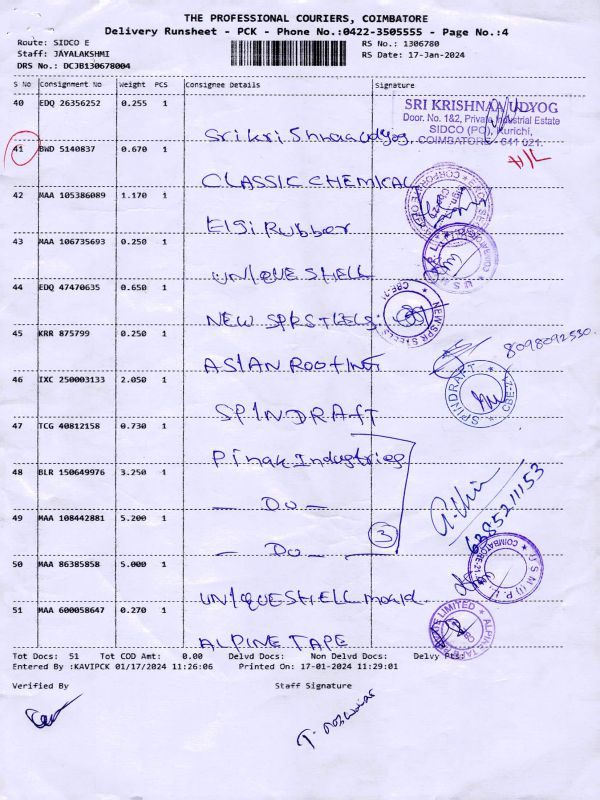 THE PROFESSIONAL COURIERS, COIMBATORE
Delivery Runsheet - PCK - Phone No.:0422-3505555 - Page No.:4
Route: SIDCO E
RS No.: 1306780
Staff: JAYALAKSHMI
RS Date: 17-Jan-2024
DRS No.: DCJB130678004
S No Consignment No Weight PCS Consignee Details Signature
40 EDQ 26356252 0.255 1
SRI KRISHNAA UDYOG
Door. No. 1&2, Private Industrial Estate
SIDCO (PO), Kurichi,
COIMBATORE - 641 021.
Srikrishnaa Udyog
41 BWD 5140837 0.670 1
CLASSIC CHEMICAL
42 MAA 105386089 1.170 1
Elgi Rubber
43 MAA 106735693 0.250 1
UNIQUE SHELL
44 EDQ 47470635 0.650 1
NEW SPR STEELS.
CBE-21
NEW SPR STEELS
45 KRR 875799 0.250 1
ASIAN ROOFING
8098092530.
46 IXC 250003133 2.050 1
SPINDRAFT
SPINDRAFT
CBE-21
47 TCG 40812158 0.730 1
Pinak Industries
48 BLR 150649976 3.250 1
— Do —
6385211153
49 MAA 108442881 5.200 1
— Do —
3
50 MAA 86385858 5.000 1
COIMBATORE-21
UNIQUE SHELL mould.
51 MAA 600058647 0.270 1
ALPINE TAPE
Tot Docs: 51 Tot COD Amt: 0.00 Delvd Docs: Non Delvd Docs: Delvy Pts:
Entered By :KAVIPCK 01/17/2024 11:26:06 Printed On: 17-01-2024 11:29:01
Verified By
Staff Signature